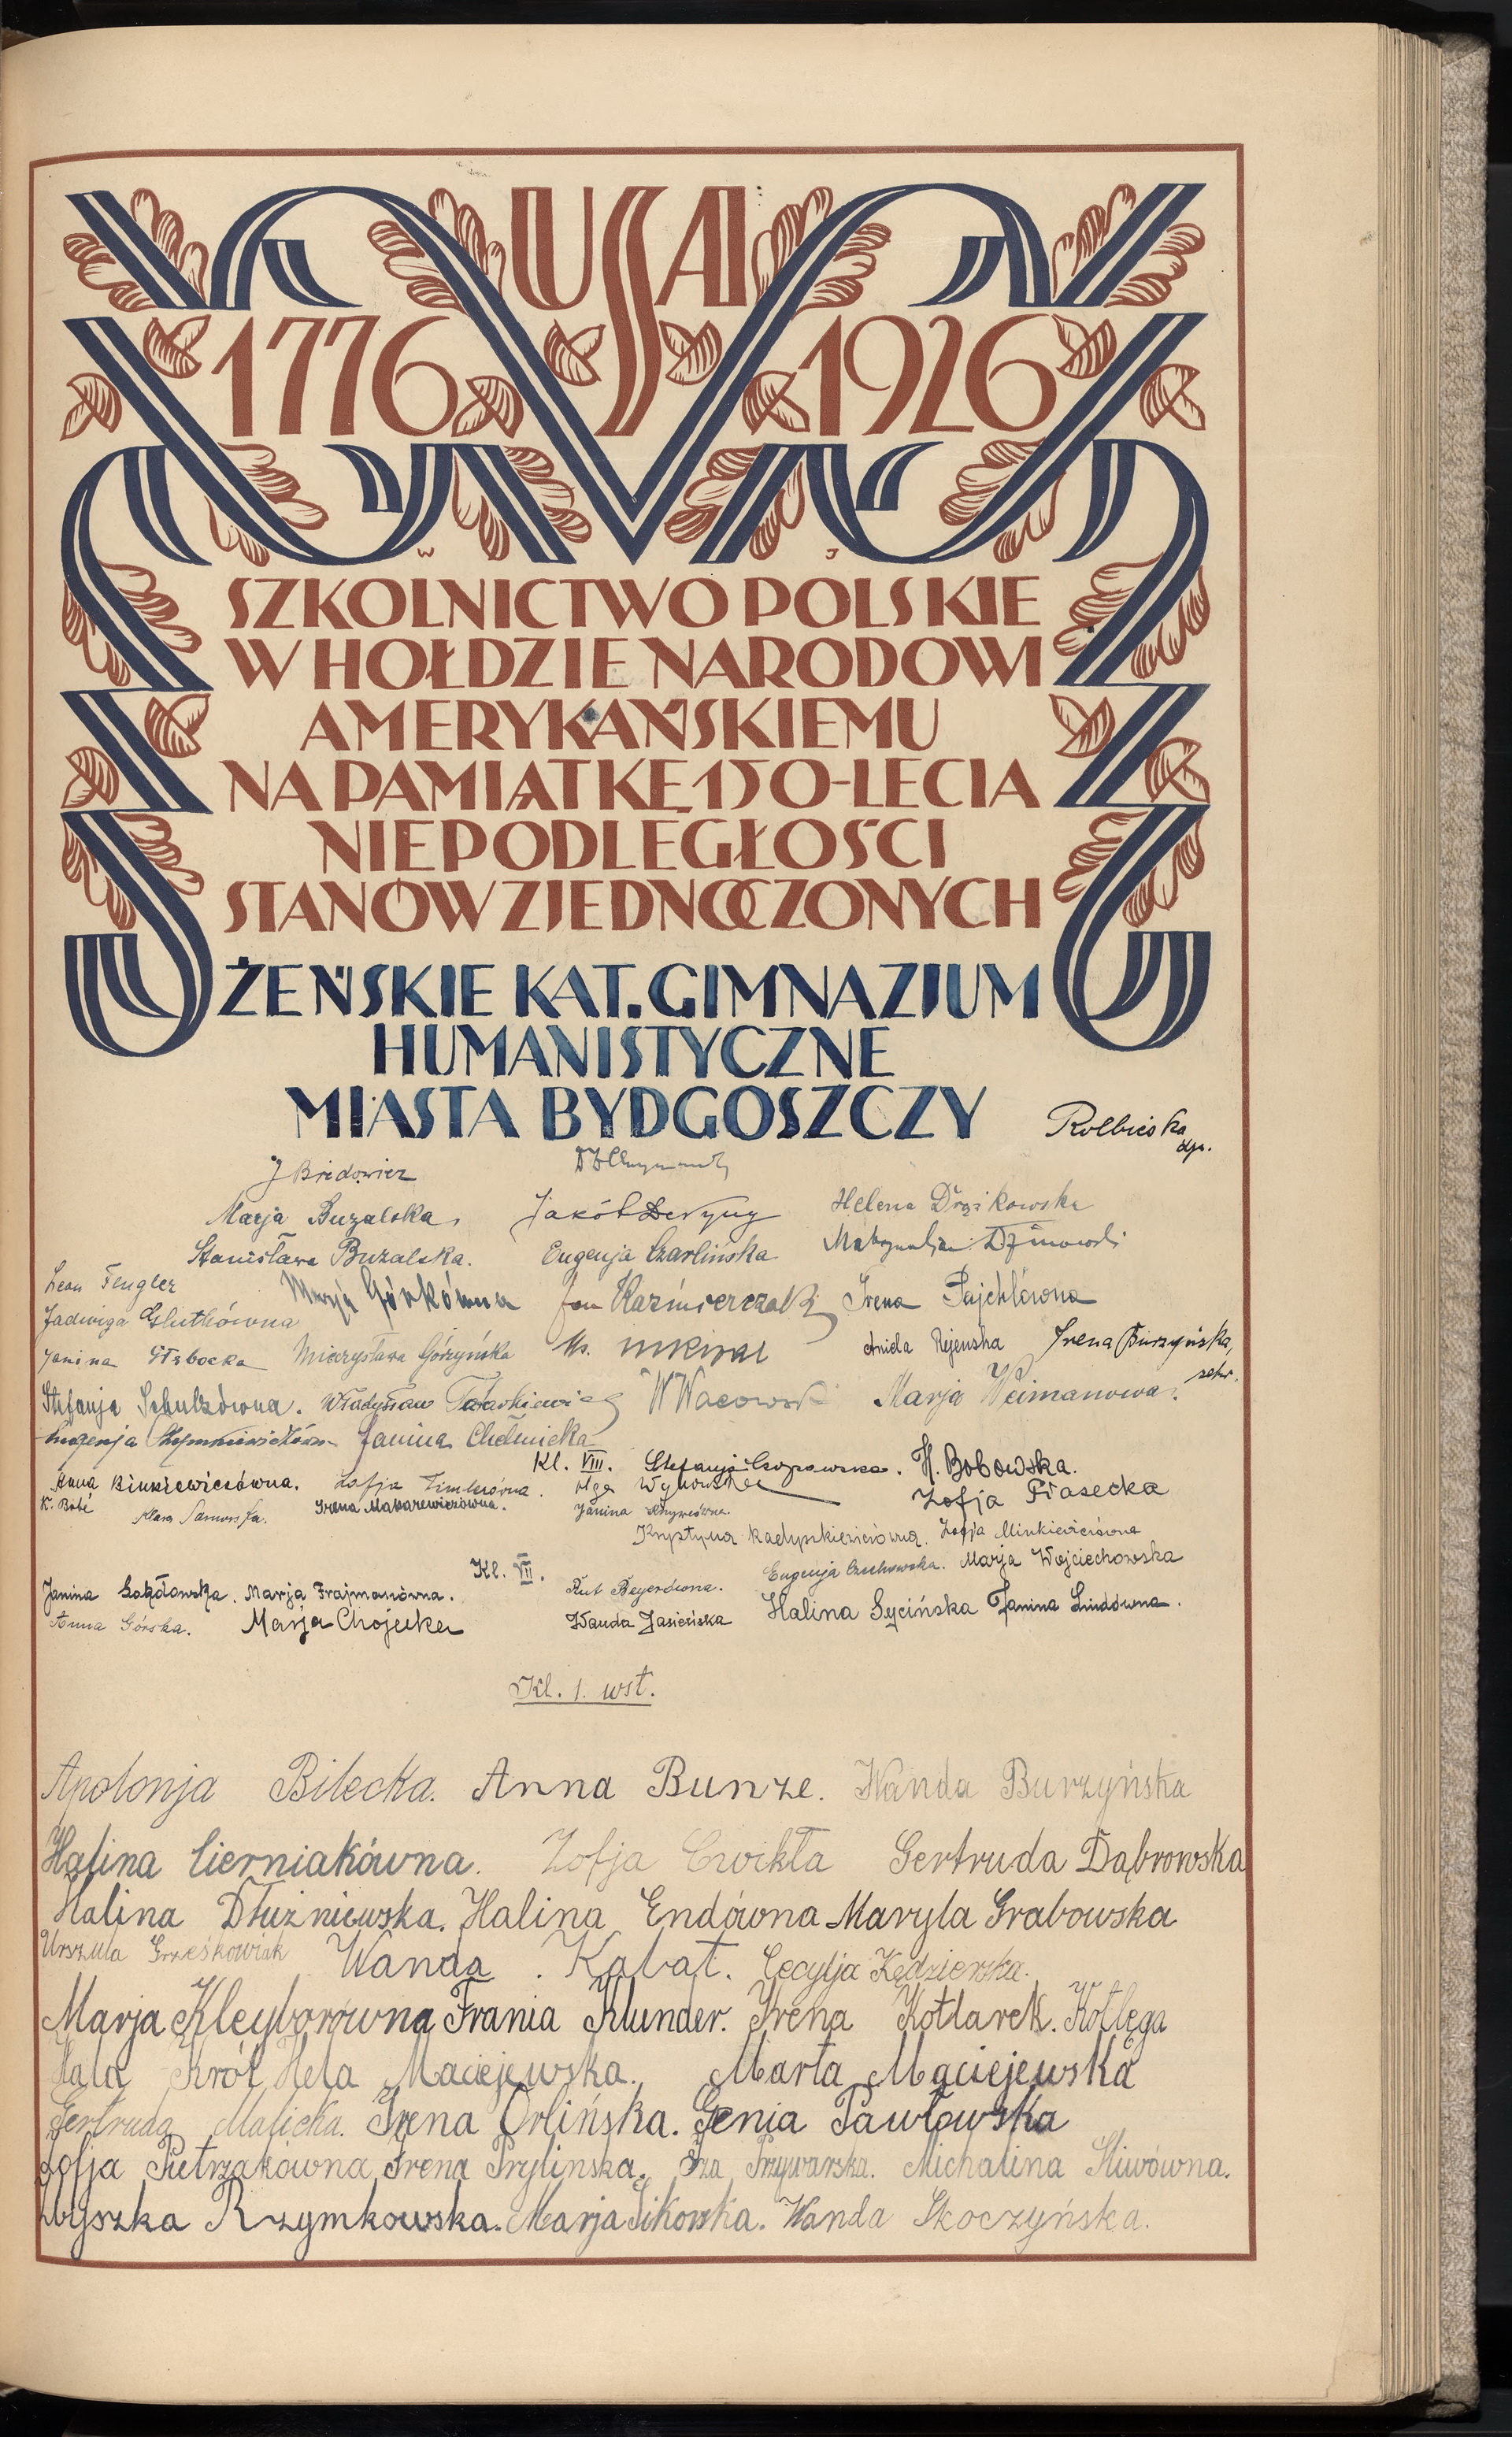 USA
1776 1926
W J
SZKOLNICTWO POLSKIE
W HOŁDZIE NARODOWI
AMERYKAŃSKIEMU
NA PAMIĄTKĘ 150-LECIA
NIEPODLEGŁOŚCI
STANÓW ZJEDNOCZONYCH
ŻEŃSKIE KAT. GIMNAZJUM
HUMANISTYCZNE
MIASTA BYDGOSZCZY
Rolbieska dyr.
J Bridowicz
Marja Buzalska. Jakób Helena Drążkowska
Stanisława Buzalska. Eugenja Czarlińska
Leon Fengler
Marja Górkówna Jan Kazimierczak Irena Pajchlówna
Jadwiga Gluthówna
Janina Głębocka Mieczysława Górzyńska Aniela Rejenska Irena Burzyńska, sekr.
Stefanja Schulzówna. Władysław Tatarkiewicz Marja Weimanowa.
Eugenja Janina Chełmicka
Kl. VIII. Stefanja Czopowska. H. Bobowska.
Anna Binkiewiczówna. Zofja Timlerówna. Olga Zofja Piasecka
K. Bobé Klara Irena Makarewiczówna. Janina
Krystyna Radyszkiewiczówna. Zofja Minkiewiczówna
Kl. VII. Eugenja Czechowska. Marja Wojciechowska
Janina Marja Frajmanówna. Rut Beyerówna.
Anna Górska. Marja Chojecka Wanda Jasieńska Halina Sycińska Janina Lindówna.
Kl. 1. wst.
Apolonja Bilecka. Anna Bunze. Wanda Burzyńska
Halina Cierniakówna. Zofja Cwikła Gertruda Dąbrowska
Halina Dłużniewska. Halina Endówna Maryla Grabowska
Urszula Grześkowiak Wanda Kabat. Cecylja Kędzierska.
Marja Kleyborówna Frania Klunder. Irena Kotlarek. Kotlęga
Hala Król Hela Maciejewska. Marta Maciejewska
Gertruda Malicka. Irena Orlińska. Genia Pawłowska
Zofja Pietrzakówna Irena Prylinska. Iza Przywarska. Michalina Śliwówna.
Zbyszka Rzymkowska. Marja Sikorska. Wanda Skoczyńska.